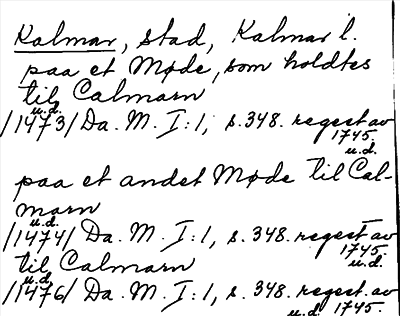 Kalmar, stad, Kalmar l.
paa et Møde, som holdtes
til Calmarn
u.d.
/1473/ Da. M. I:1, s.348. regest av
1745.
u.d.
paa et andet Møde til Cal-
marn
u.d.
/1474/ Da. M. I:1, s.348. regest av
1745
til Calmarn u.d.
u.d.
/1476/ Da. M. I:1, s.348. regest av
u.d. 1745.